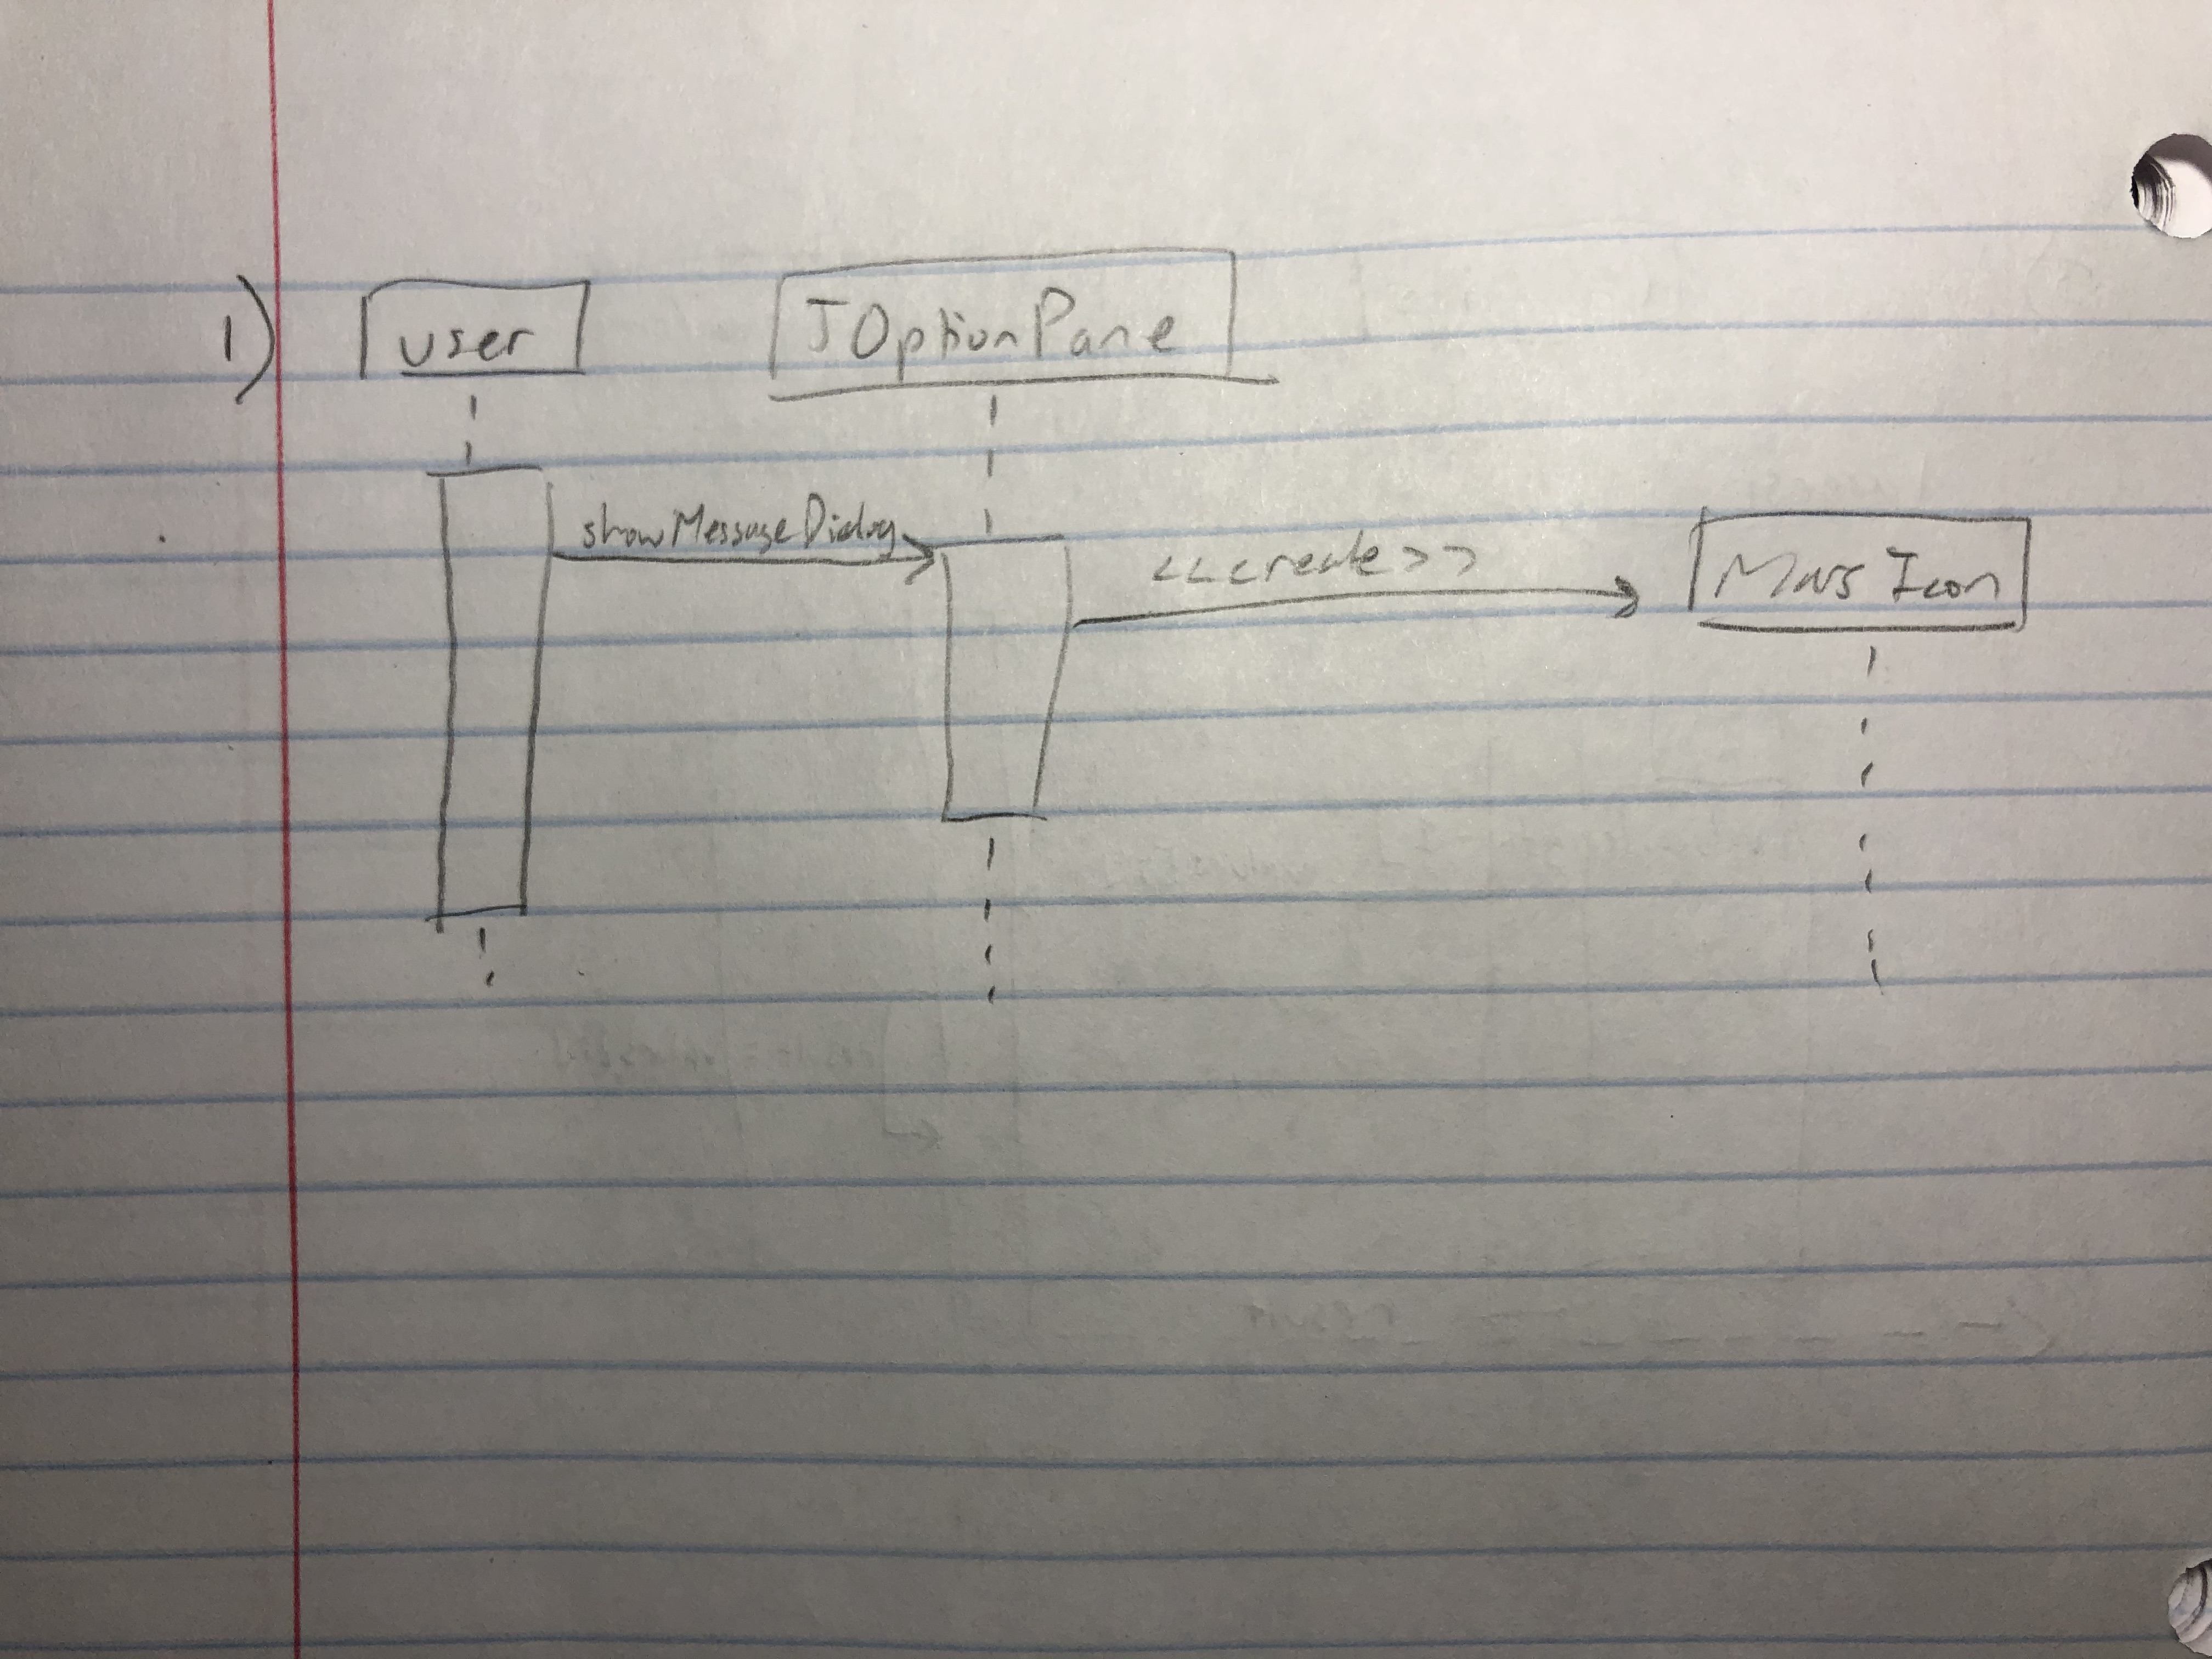 1) user JOptionPane
showMessageDialog
<<create>>
Mars Icon